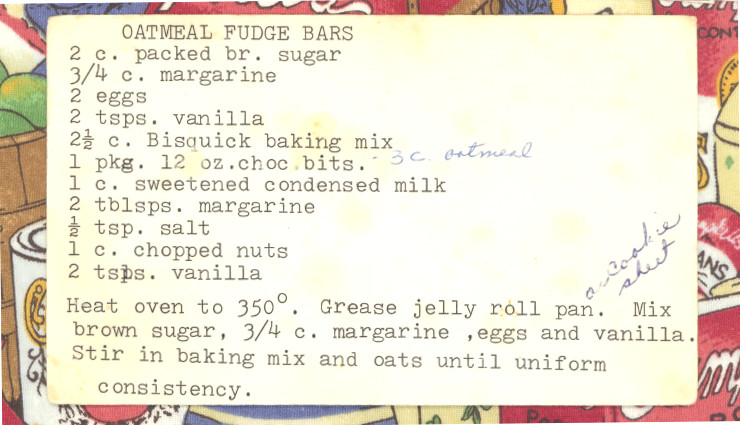 OATMEAL FUDGE BARS
2 c. packed br. sugar
3/4 c. margarine
2 eggs
2 tsps. vanilla
2½ c. Bisquick baking mix
1 pkg. 12 oz.choc.bits. - 3 c. oatmeal
1 c. sweetened condensed milk
2 tblsps. margarine
½ tsp. salt
1 c. chopped nuts
2 tsps. vanilla
or cookie
sheet
Heat oven to 350°. Grease jelly roll pan. Mix
brown sugar, 3/4 c. margarine ,eggs and vanilla.
Stir in baking mix and oats until uniform
consistency.
CONT
ANS